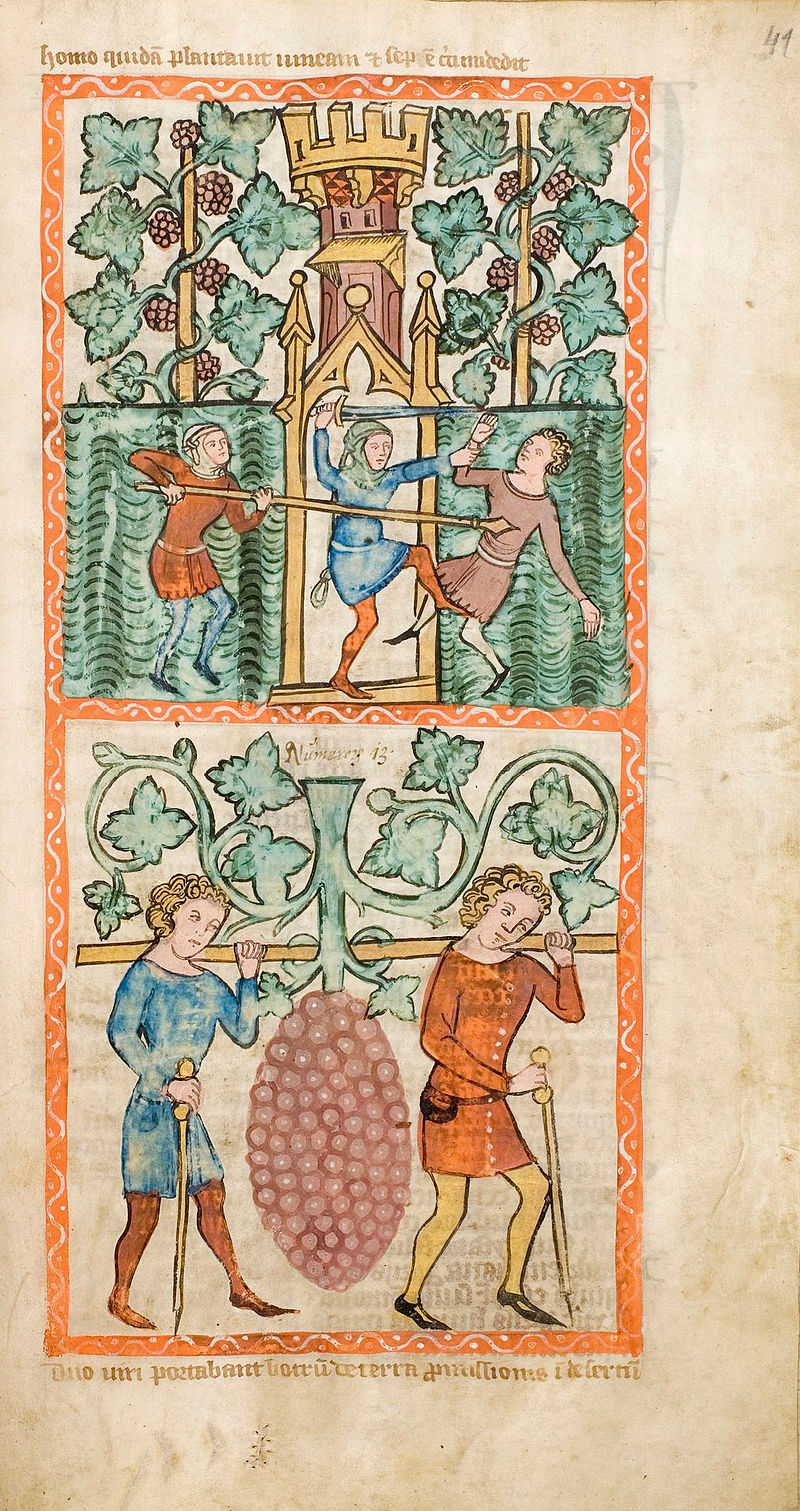 homo quidā plantauit uineam ⁊ sep ē cūmdedit
41
Numeror. 13.
Duo uiri portabant botrū de terra ꝓmissionis ī desertū